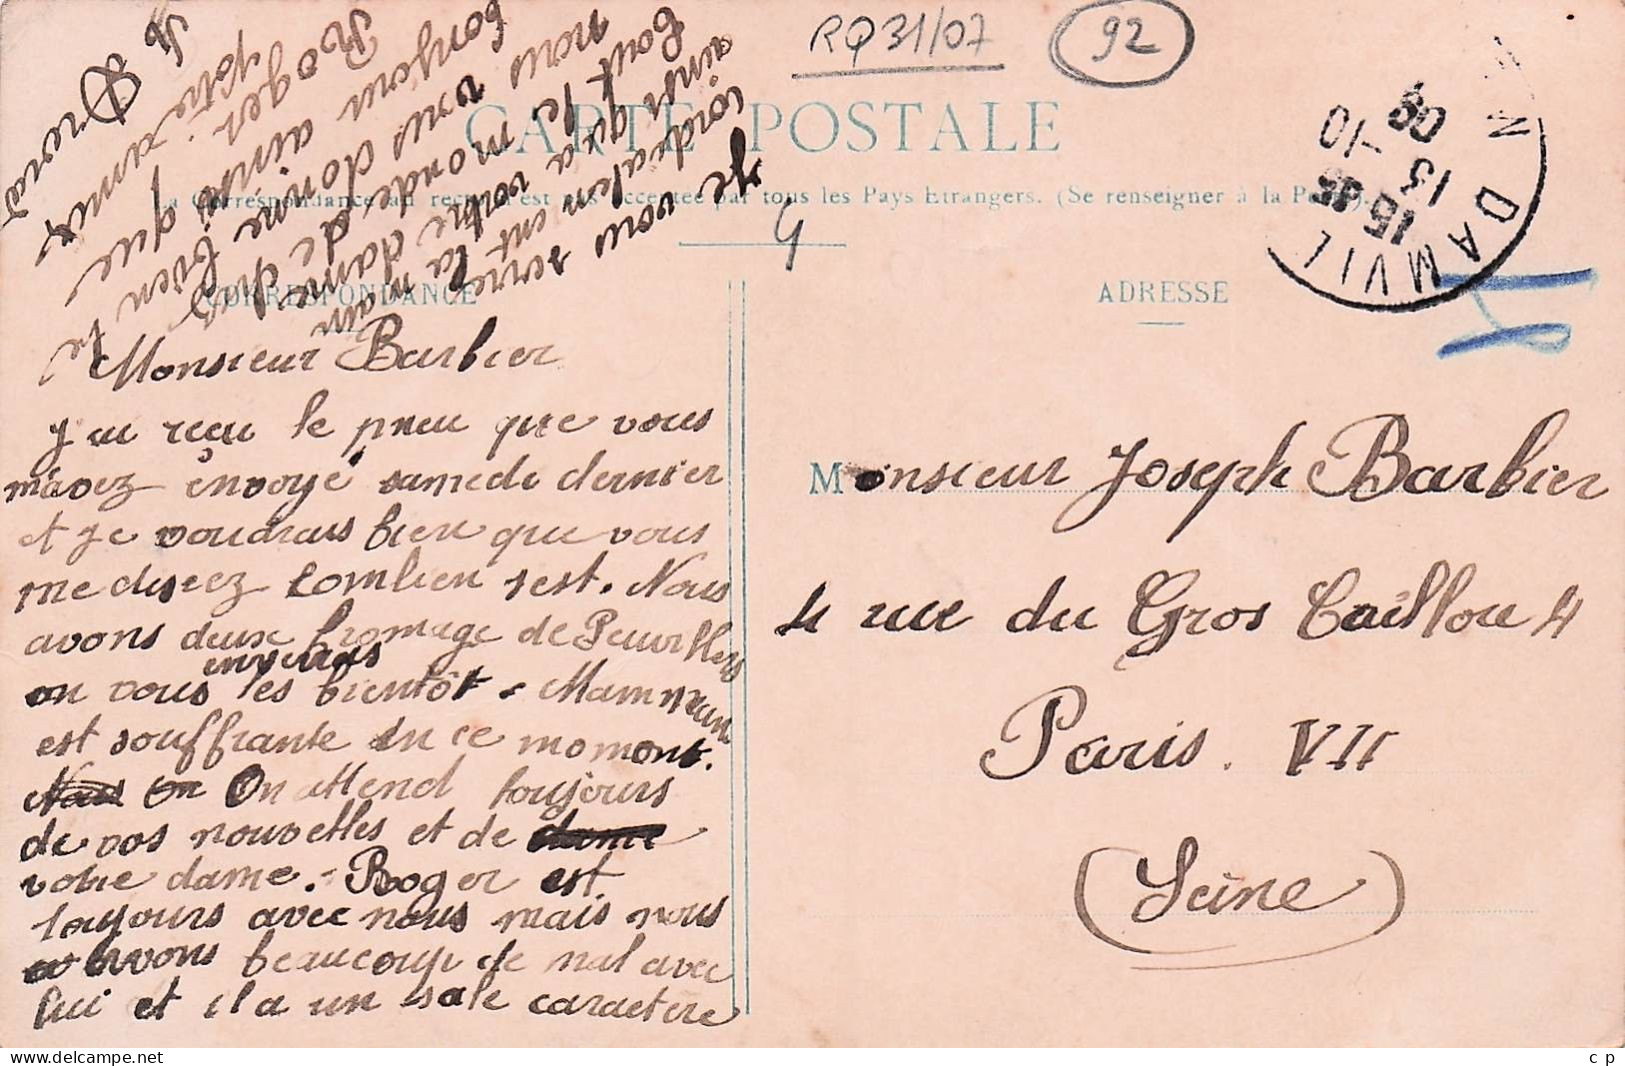 RQ31/07
92
CARTE POSTALE
La Correspondance au recto n'est pas acceptée par tous les Pays Etrangers. (Se renseigner à la Poste).
DAMVIL
15 45
13 -10
09
4
CORRESPONDANCE
ADRESSE
Monsieur Barbier
J'ai reçu le pneu que vous
m'avez envoyé samedi dernier
et je voudrais bien que vous
me disiez combien s'est. Nous
avons deux fromage de
on vous enverras les bientôt. Mamman
est souffrante en ce momont.
On attend toujours
de vos nouvelles et de
votre dame. Roger est
toujours avec nous mais nous
avons beaucoup de mal avec
lui et il a un sale caractère
Je vous serre la main
cordialement
ainsi qu'a votre dame
tout le monde de chez
nous vous donne bien le
bonjour ainsi que
Roger.
votre ami
Monsieur Joseph Barbier
4 rue du Gros Caillou 4
Paris. VII
(Seine)
c p